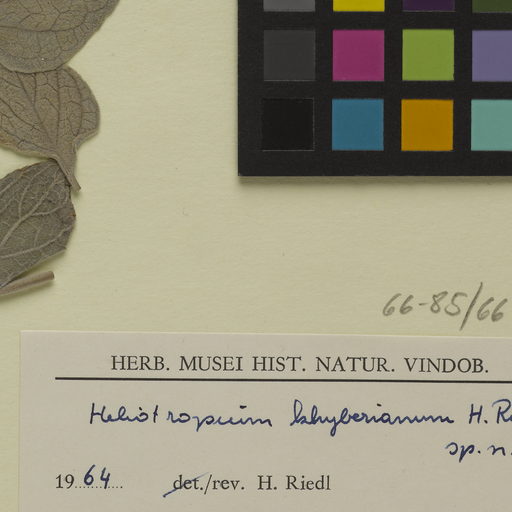 66-85/66
HERB. MUSEI HIST. NATUR. VINDOB.
Heliotropium khyberianum H.
sp. n.
1964 det./rev. H. Riedl